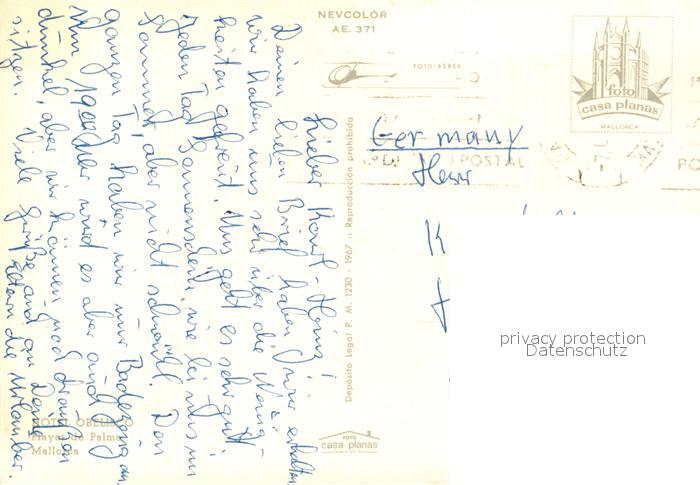 NEVCOLOR
AE. 371
FOTO-AEREA
foto
casa planas
MALLORCA
Lieber Karl-Heinz!
Deinen lieben Brief haben wir erhalten,
wir haben uns sehr über die Neuig-
keiten gefreut. Uns geht es sehr gut.
Jeden Tag Sonnenschein, wie bei uns im
Sommer, aber nicht schwül. Den
ganzen Tag haben wir nur Badezeug an.
Um 19 wird es aber auch
dunkel, aber wir können noch draußen
sitzen. Viele Grüße auch an Deine
Eltern die Urlauber.
Germany
Herr
K
POSTAL
Depósito Legal P. M. 1230 - 1967 :: Reproducción prohibida
HOTEL OBELISCO
Playas de Palma
Mallorca
FOTO
casa planas
privacy protection
Datenschutz